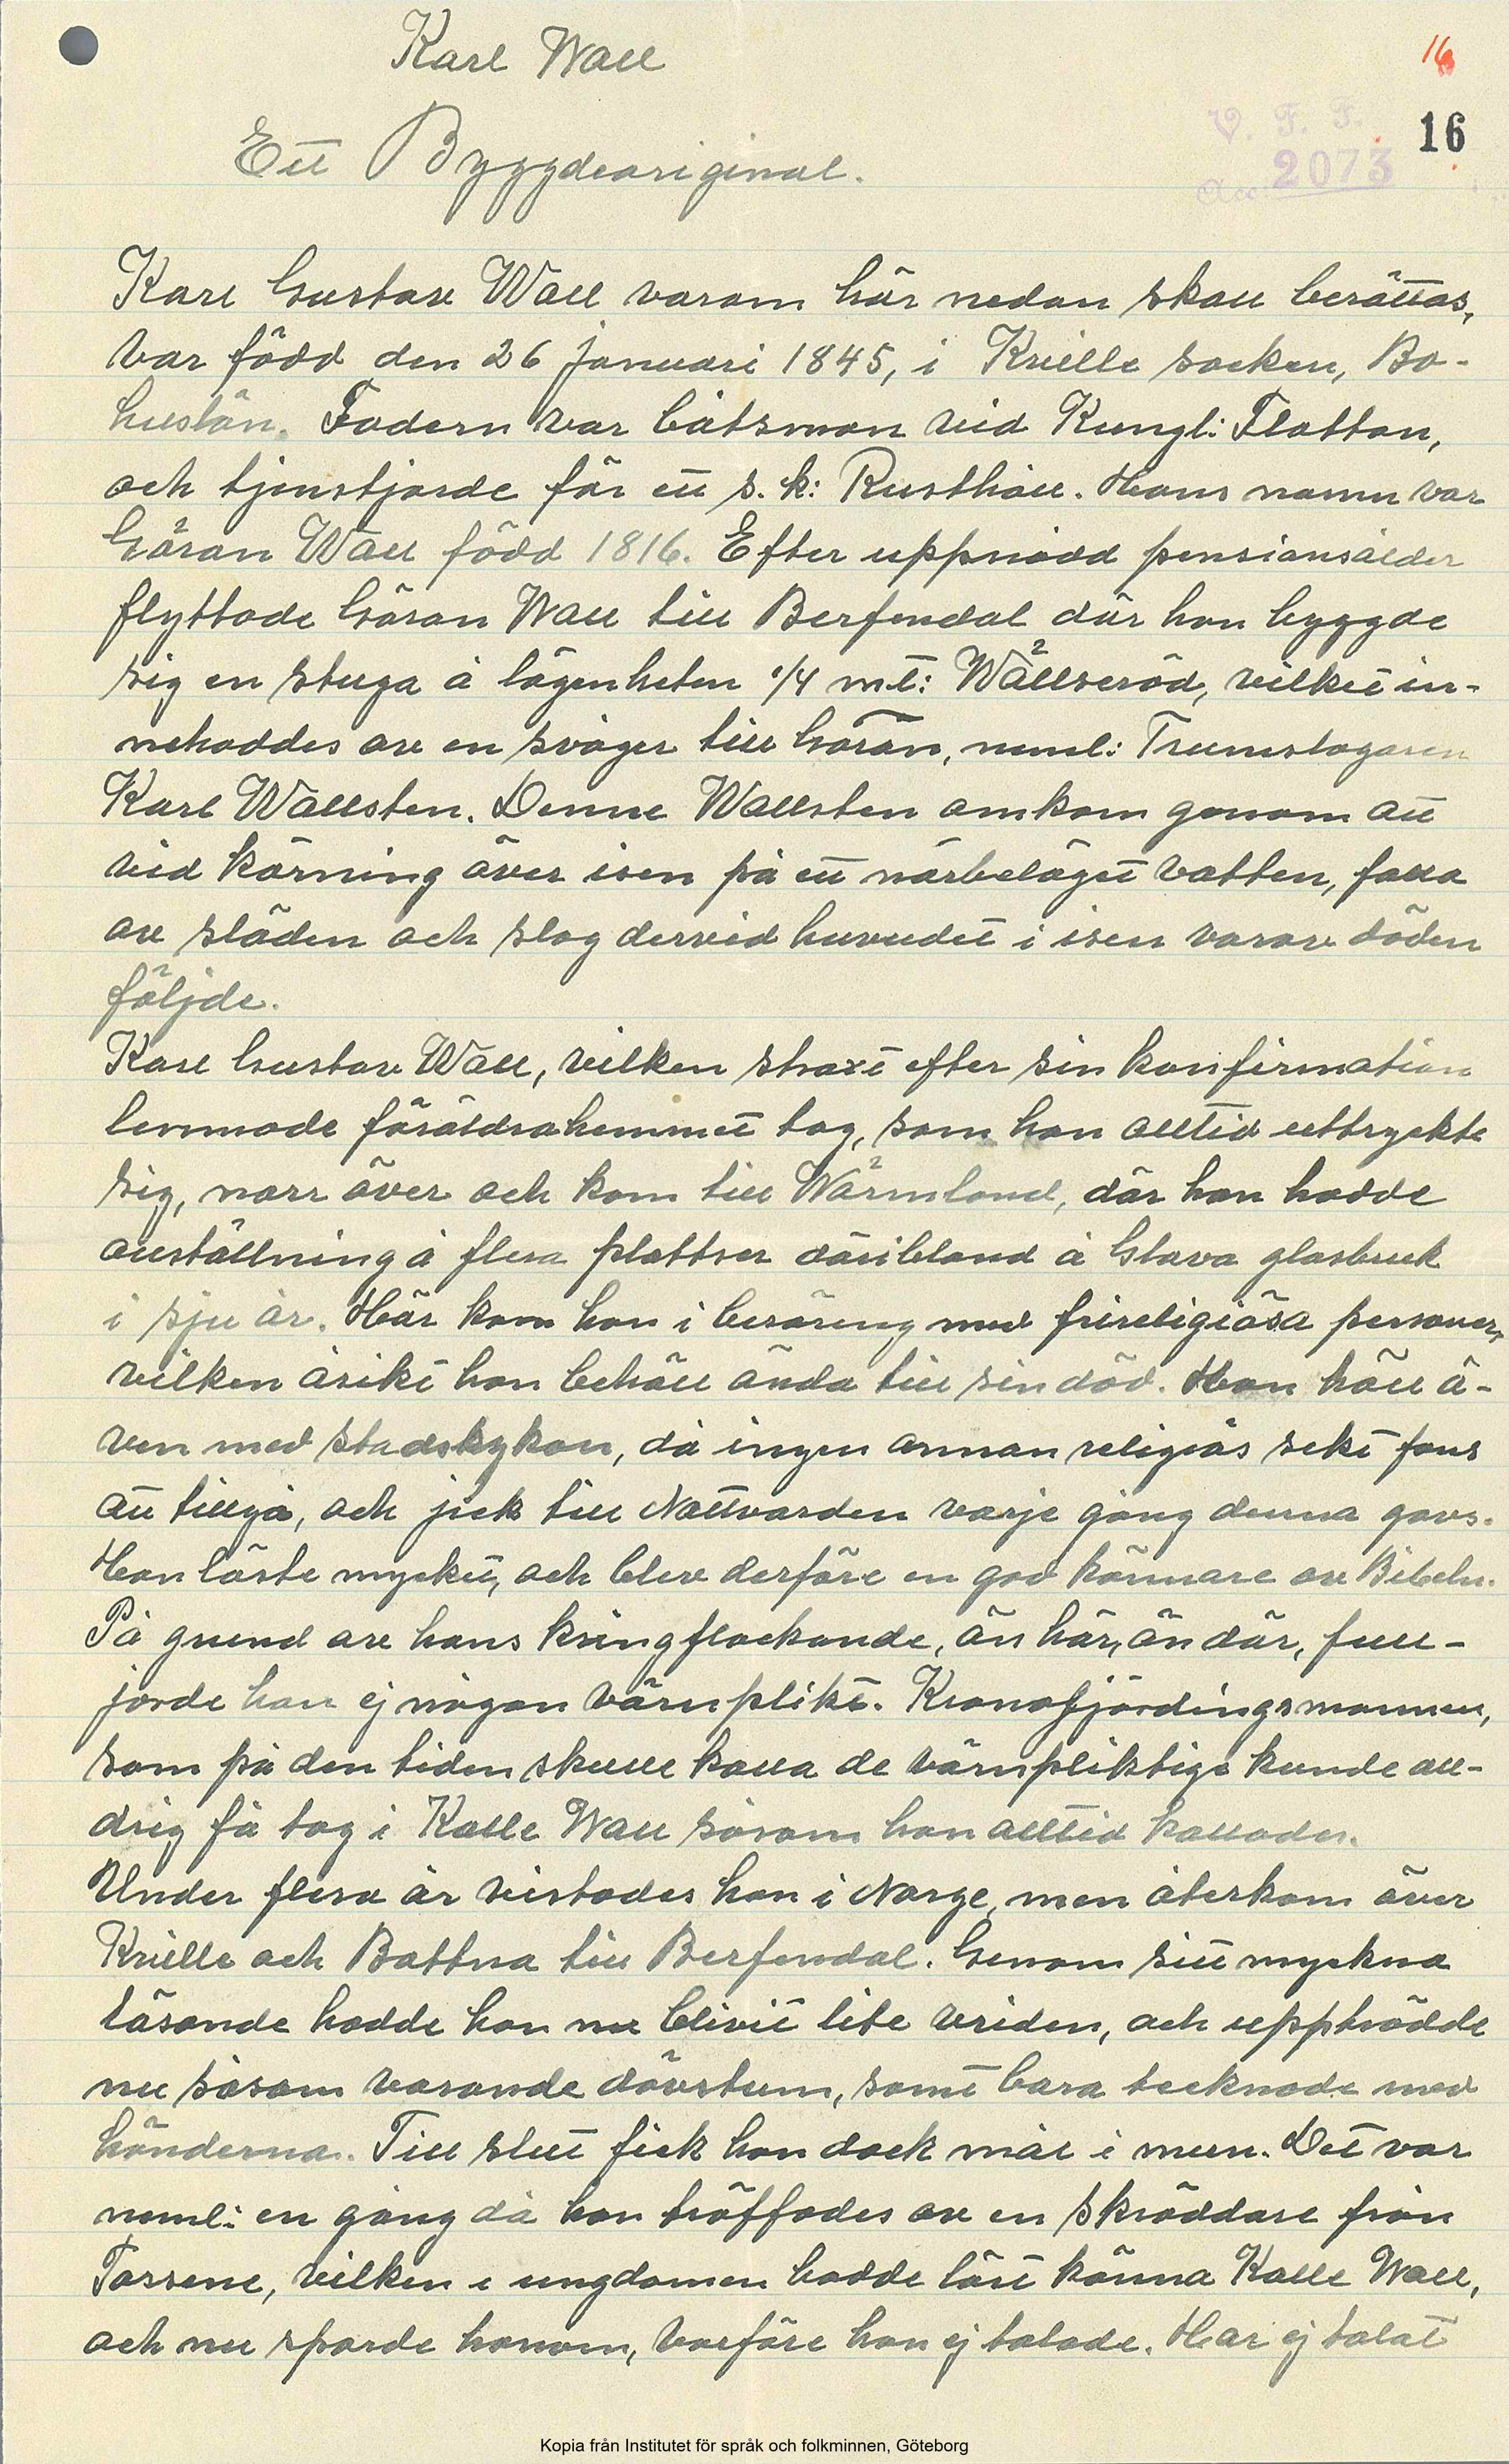 Karl Wall
16
16
V. F. F.
Acc. 2073
Ett Bygdeoriginal.
Karl Gustav Wall varom här nedan skall berättas,
var född den 26 januari 1845, i Kville socken, Bo-
huslän. Fadern var båtsman vid Kungl: Flottan,
och tjenstjorde för ett s. k: Rusthåll. Hans namn var
Göran Wall född 1816. Efter uppnådd pensionsålder
flyttade Göran Wall till Berfendal där han byggde
sig en stuga å lägenheten 1/4 mtl: Wällseröd, vilket in-
nehaddes av en svåger till Göran, neml: Trumslagaren
Karl Wallsten. Denne Wallsten omkom genom att
vid körning över isen på ett närbeläget vatten, falla
av släden och slog dervid huvudet i isen varav döden
följde.
Karl Gustav Wall, vilken straxt efter sin konfirmation
lemnade föräldrahemmet tog, som han alltid uttryckte
sig, norr över och kom till Wärmland, där han hadde
anställning å flera plattser däribland å Glava glasbruk
i sju år. Här kom han i beröring med frireligiösa personer,
vilken åsikt han behöll ända till sin död. Han höll ä-
ven med stadskykan, då ingen annan religiös sekt fans
att tillgå, och jick till Nattvarden varje gång denna gavs.
Han läste mycket, och blev derföre en god kännare av Bibeln.
På grund av hans kringflackande, än här, än där, full-
jorde han ej någon värnplikt. Kronofjärdingsmannen,
som på den tiden skulle kalla de värnpliktige kunde all-
drig få tag i Kalle Wall såsom han alltid kallades.
Under flera år vistades han i Norge, men återkom över
Kville och Bottna till Berfendal. Genom sitt myckna
läsande hadde han nu blivit lite vriden, och uppträdde
nu såsom varande dövstum, samt bara tecknade med
händerna. Till slut fick han dock mål i mun. Det var
neml: en gång då han träffades av en skräddare från
Tossene, vilken i ungdomen hadde lärt känna Kalle Wall,
och nu sporde honom, varföre han ej talade. Har ej talat
Kopia från Institutet för språk och folkminnen, Göteborg